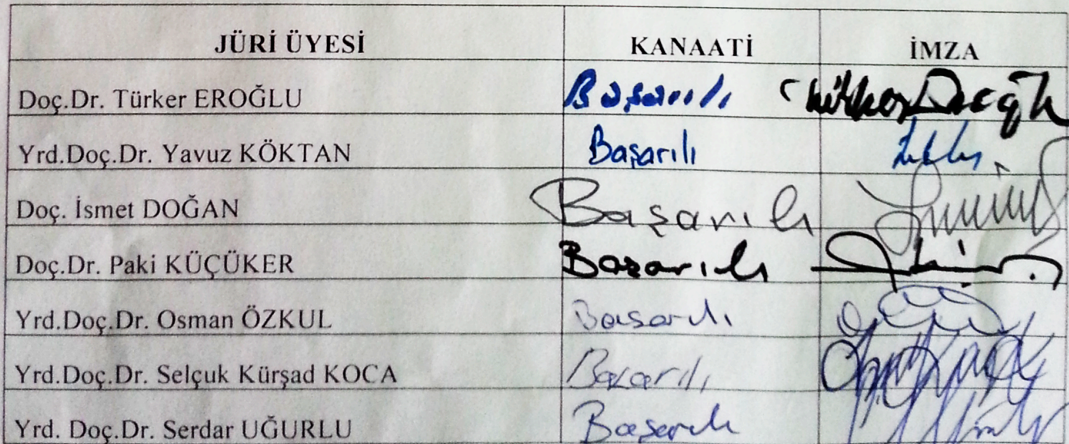 JÜRİ ÜYESİ KANAATİ İMZA
Doç.Dr. Türker EROĞLU Başarılı
Yrd.Doç.Dr. Yavuz KÖKTAN Başarılı
Doç. İsmet DOĞAN Başarılı
Doç.Dr. Paki KÜÇÜKER Başarılı
Yrd.Doç.Dr. Osman ÖZKUL Başarılı
Yrd.Doç.Dr. Selçuk Kürşad KOCA Başarılı
Yrd. Doç.Dr. Serdar UĞURLU Başarılı